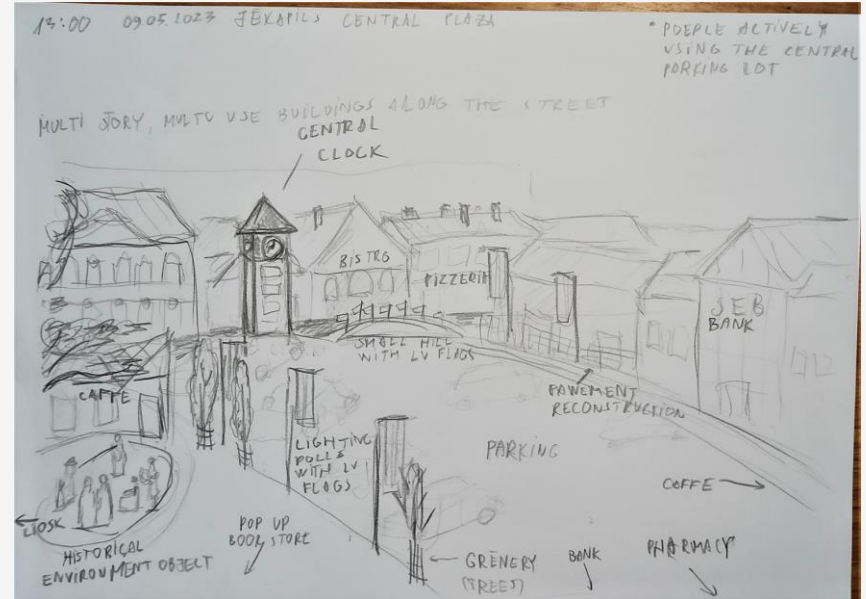 13:00 09.05.2023 JĒKAPILS CENTRAL PLAZA
* POEPLE ACTIVELY
USING THE CENTRAL
PORKING LOT
MULTI STORY, MULTU USE BUILDINGS ALONG THE STREET
CENTRAL
CLOCK
BISTRO
PIZZERIA
SEB
BANK
SMALL HILL
WITH LV FLAGS
CAFFE
PAWEMENT
RECONSTRUCTION
LIGHTING
POLLS
WITH LV
FLAGS
PARKING
COFFE
LIOSK
POP UP
BOOK STORE
HISTORICAL
ENVIROUMENT OBJECT
GRENERY
(TREES)
BANK
PHARMACY